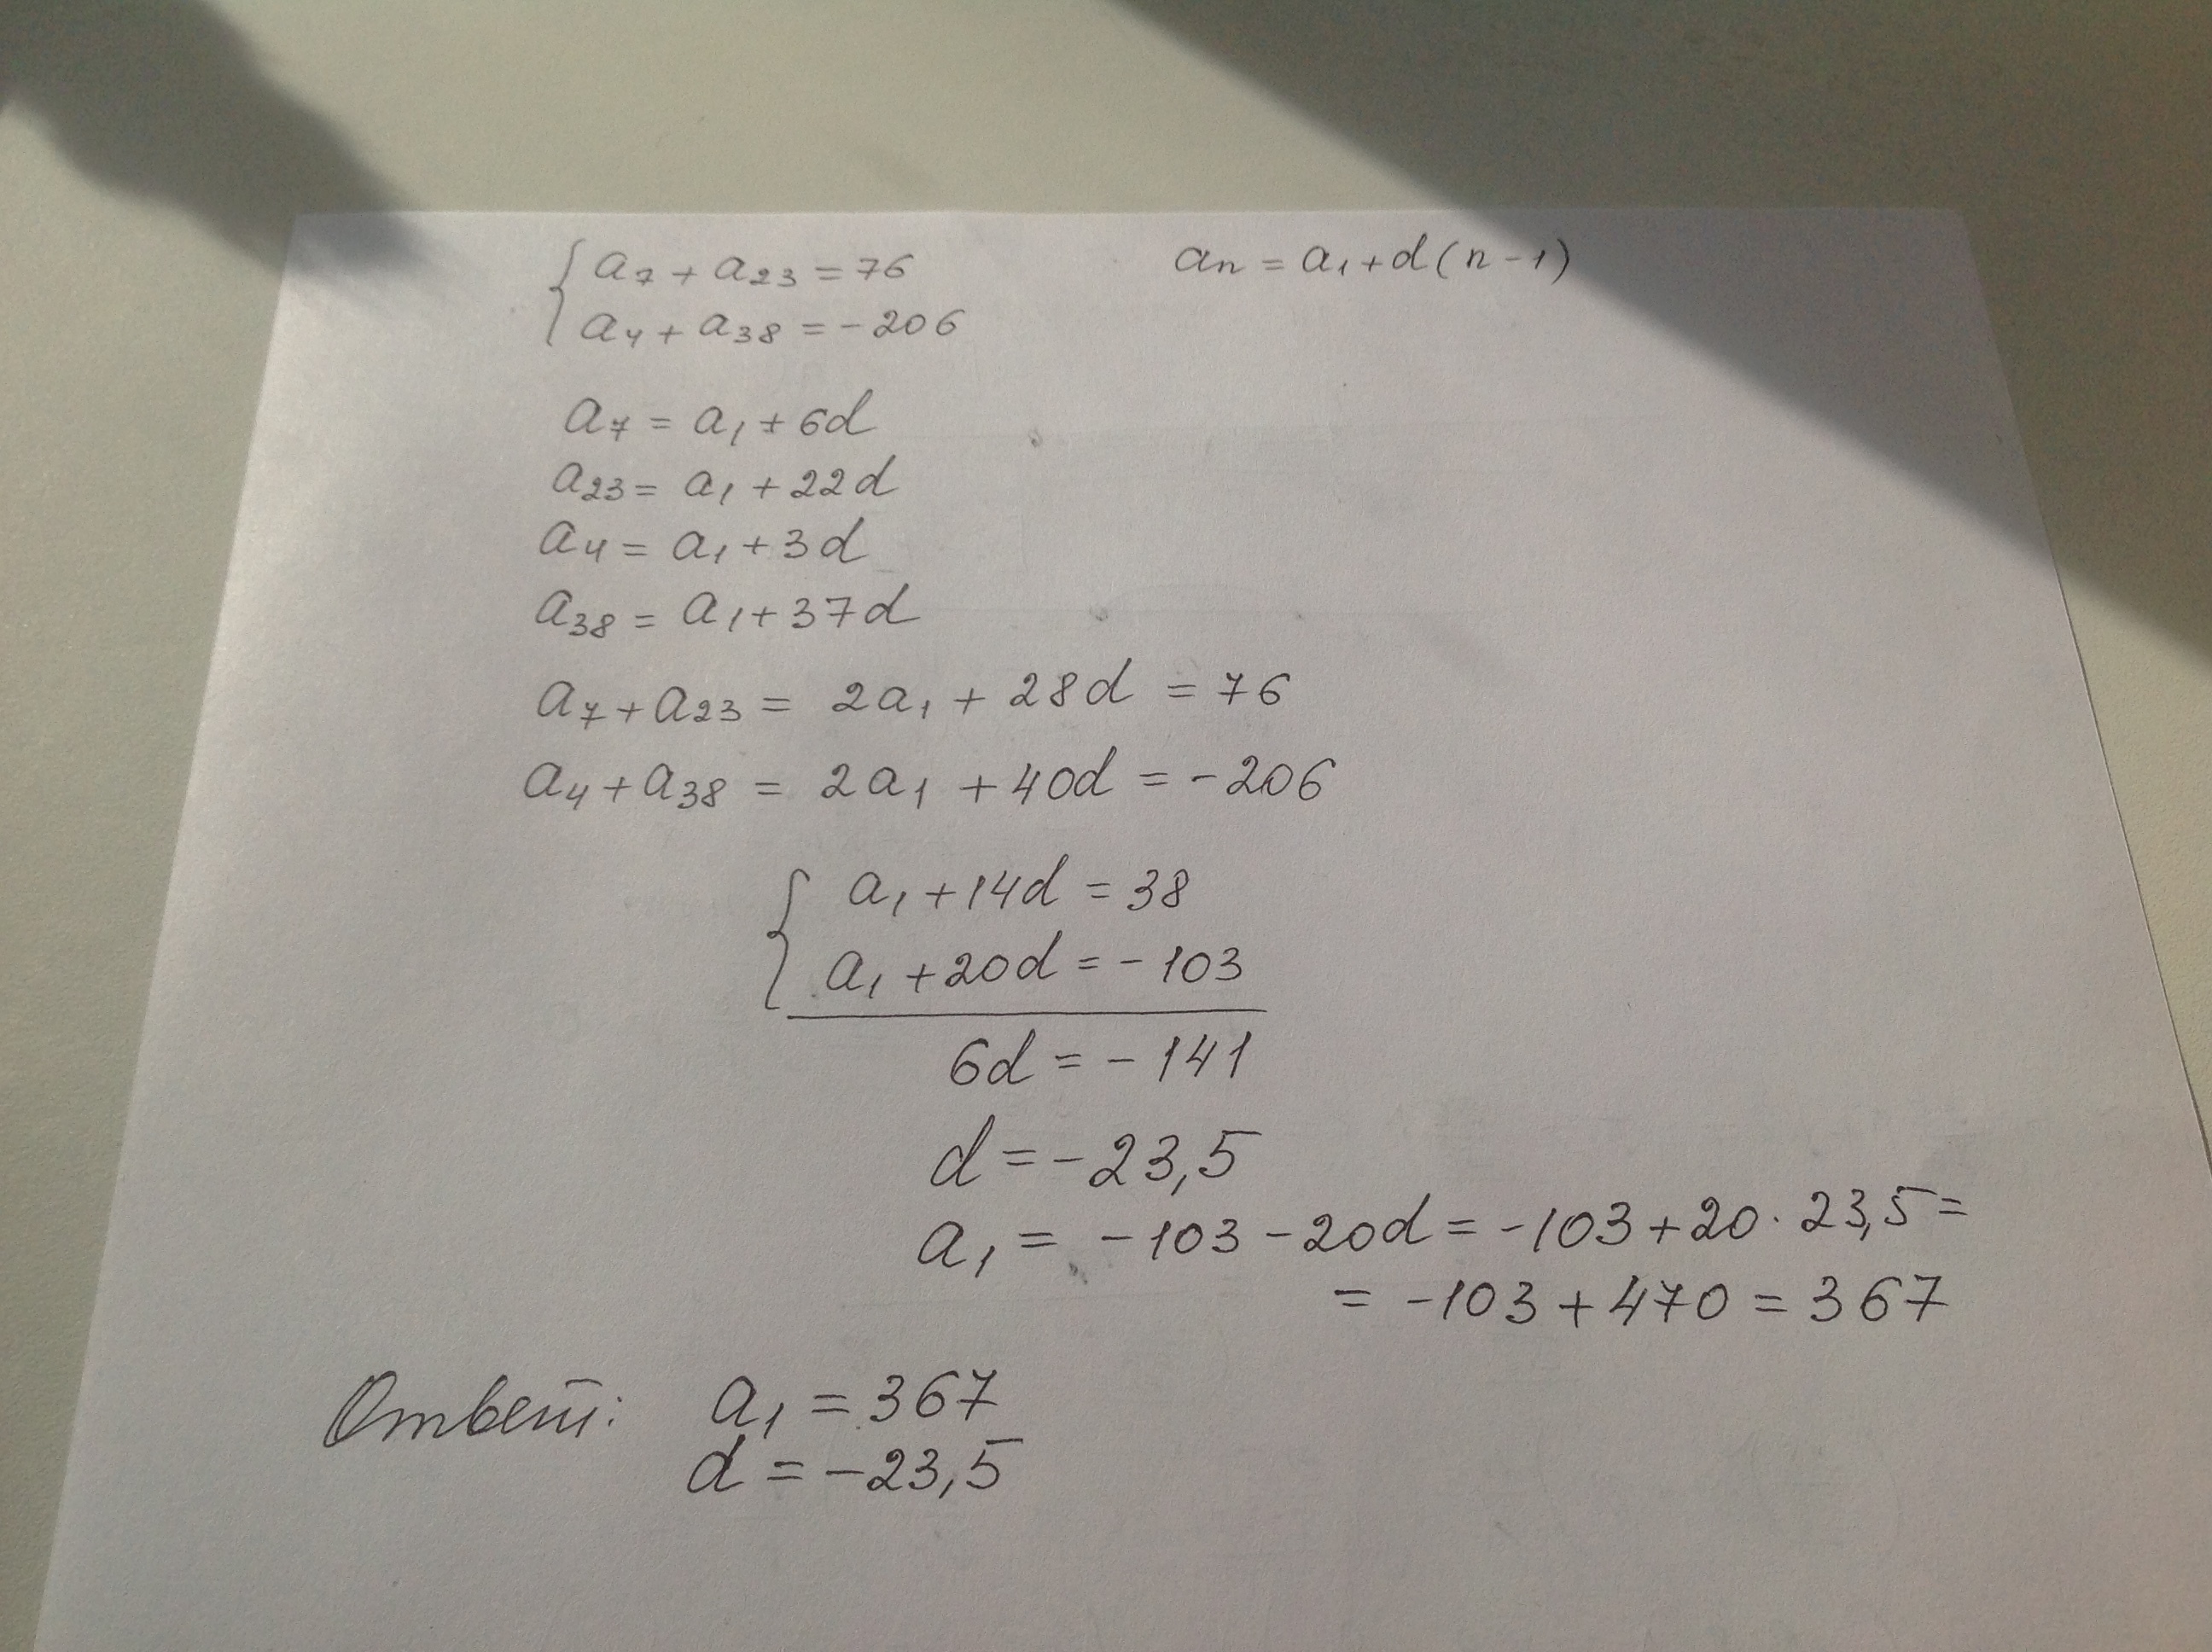 a₇ + a₂₃ = 76
aₙ = a₁ + d(n - 1)
a₄ + a₃₈ = - 206
a₇ = a₁ + 6d
a₂₃ = a₁ + 22d
a₄ = a₁ + 3d
a₃₈ = a₁ + 37d
a₇ + a₂₃ = 2a₁ + 28d = 76
a₄ + a₃₈ = 2a₁ + 40d = - 206
a₁ + 14d = 38
a₁ + 20d = - 103
6d = - 141
d = - 23,5
a₁ = - 103 - 20d = - 103 + 20 · 23,5 =
= - 103 + 470 = 367
Ответ: a₁ = 367
d = - 23,5